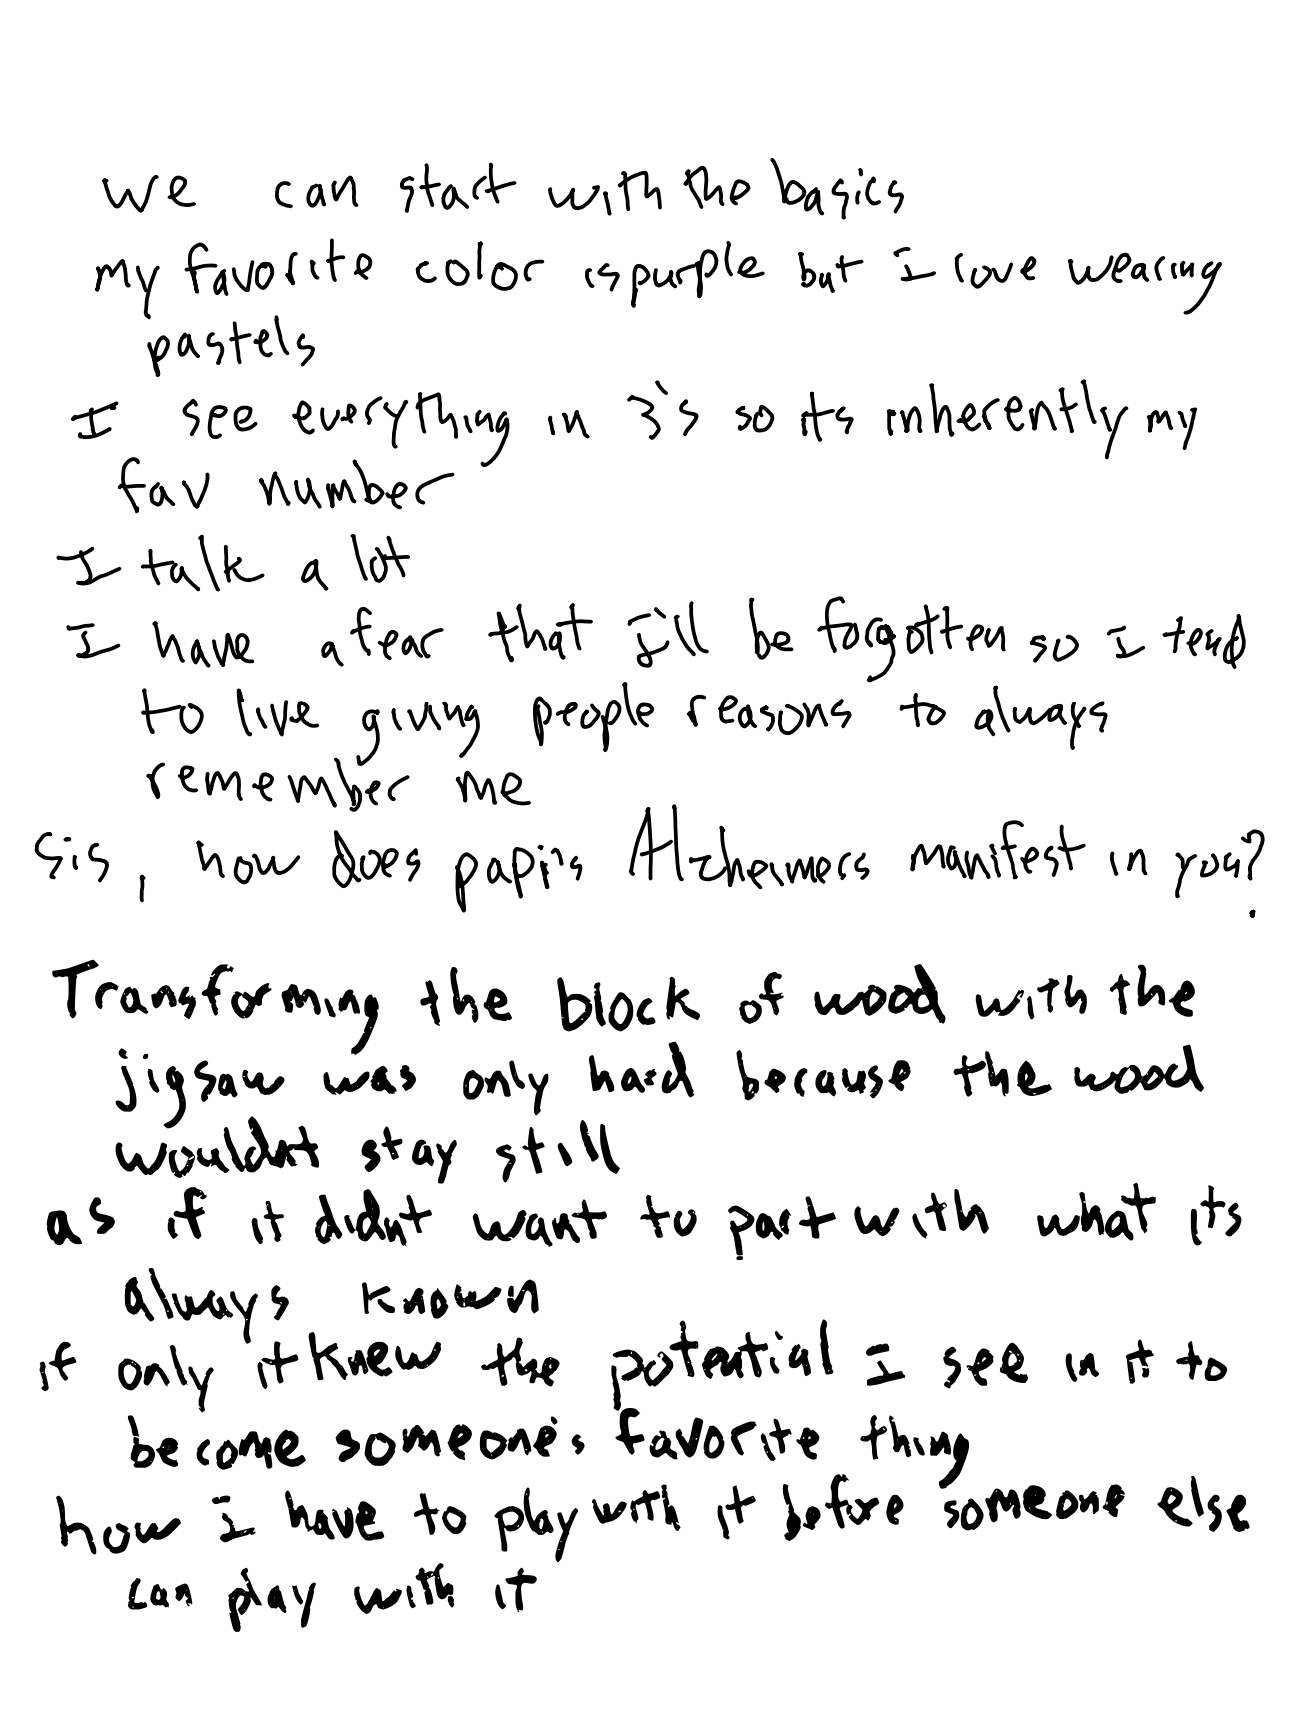 we can start with the basics
my favorite color is purple but I love wearing
pastels
I see everything in 3's so its inherently my
fav number
I talk a lot
I have a fear that I'll be forgotten so I tend
to live giving people reasons to always
remember me
Sis, how does papi's Alzheimers manifest in you?
Transforming the block of wood with the
jigsaw was only hard because the wood
wouldnt stay still
as if it didnt want to part with what its
always known
if only it knew the potential I see in it to
become someone's favorite thing
how I have to play with it before someone else
can play with it